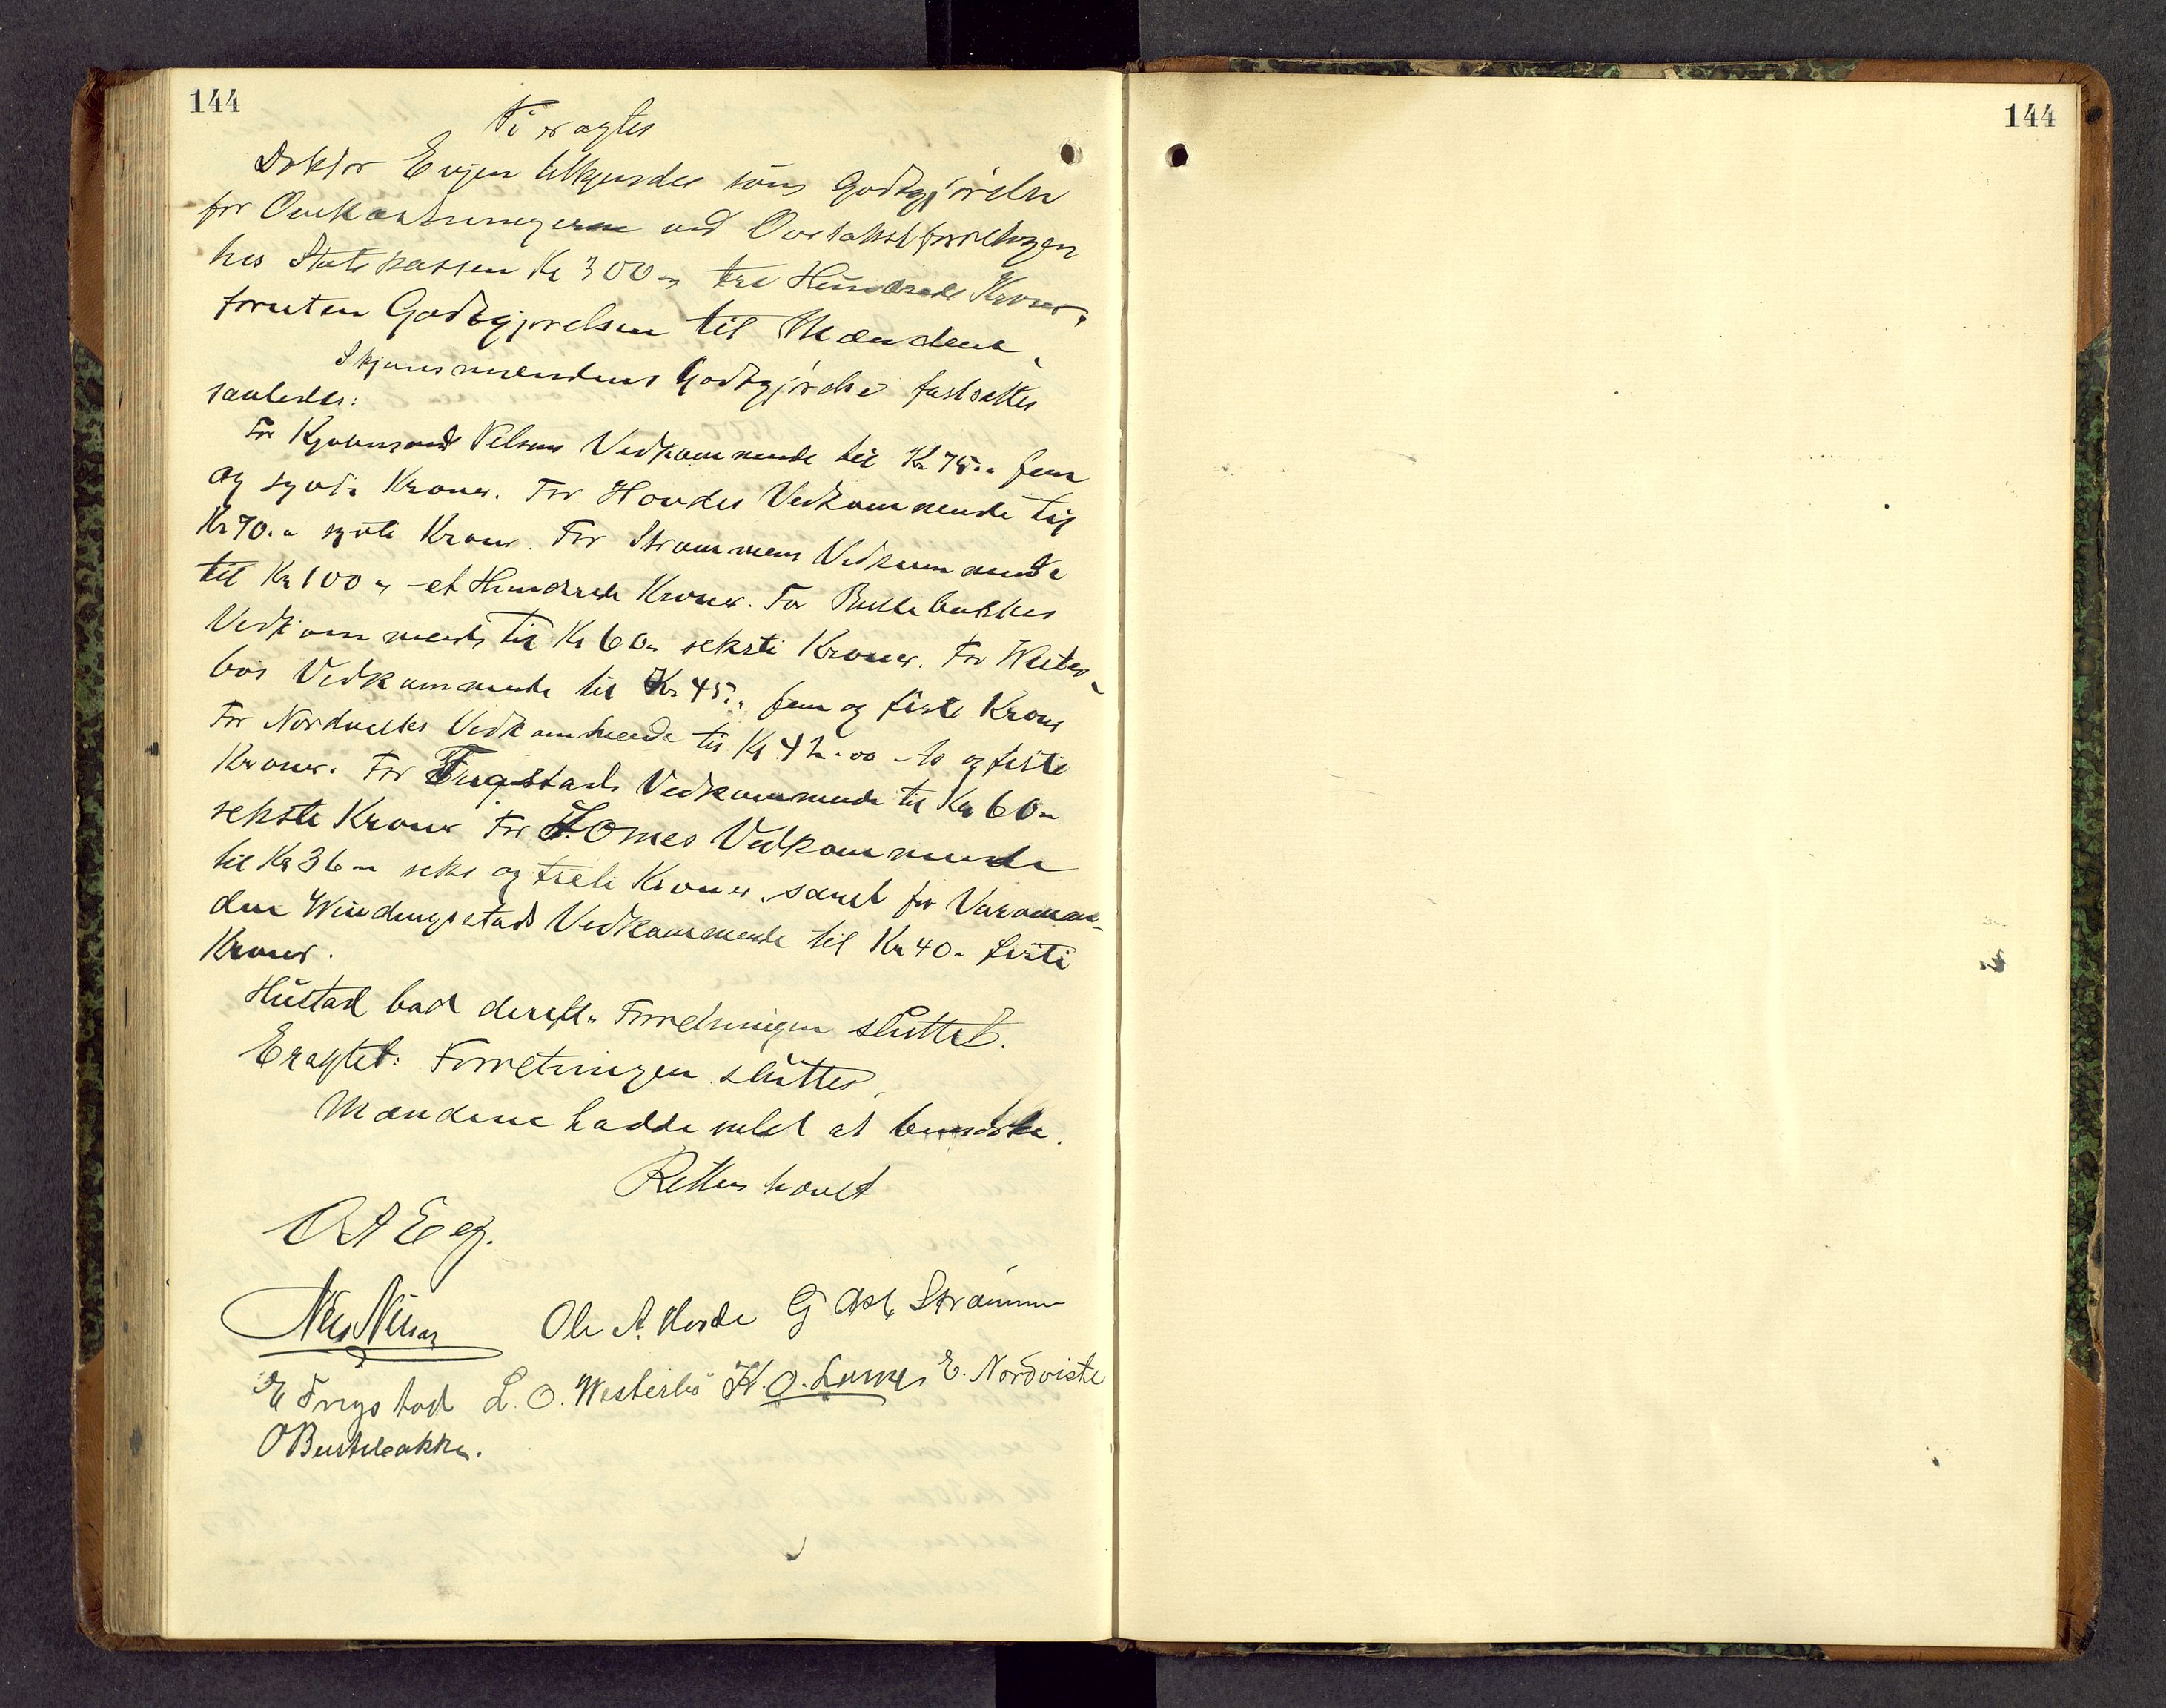 144
Ti eragtes
Doktor Evjen tilkjendes som Godtgjørelse
for Omkostningerne ved Overtakstforretningen
hos Statskassen Kr 300 - tre Hundrede Kroner,
foruten Godtgjørelsen til Mændene.
Skjønsmændenes Godtgjørelse fastsættes
saaledes:
For Kjøbmand Nilsens Vedkommende til Kr 75.- fem
og sytti Kroner. For Hovdes Vedkommende til
Kr 70.- sytti Kroner. For Strømmens Vedkommende
til Kr 100 - et Hundrede Kroner. For Bustebakkes
Vedkommende til Kr 60- seksti Kroner. For Wester-
bøs Vedkommende til Kr 45.- fem og førti Kroner
For Nordviks Vedkommende til Kr 42.00 - to og førti
Kroner. For Frugstads Vedkommende til Kr 60-
seksti Kroner For Lomes Vedkommende
til Kr 36- seks og treti Kroner, samt for Varaman-
den Windingstads Vedkommende til Kr 40- førti
Kroner.
Hustad bad derefter Forretningen sluttet.
Eragtet: Forretningen sluttes.
Mændene hadde intet at bemerke.
Retten hævet
O A Eeg.
Nils Nilsen Ole A. Hovde G Strømme
Frugstad L. O. Westerbø K. O. E. Nordvik
O Bustebakke.
144